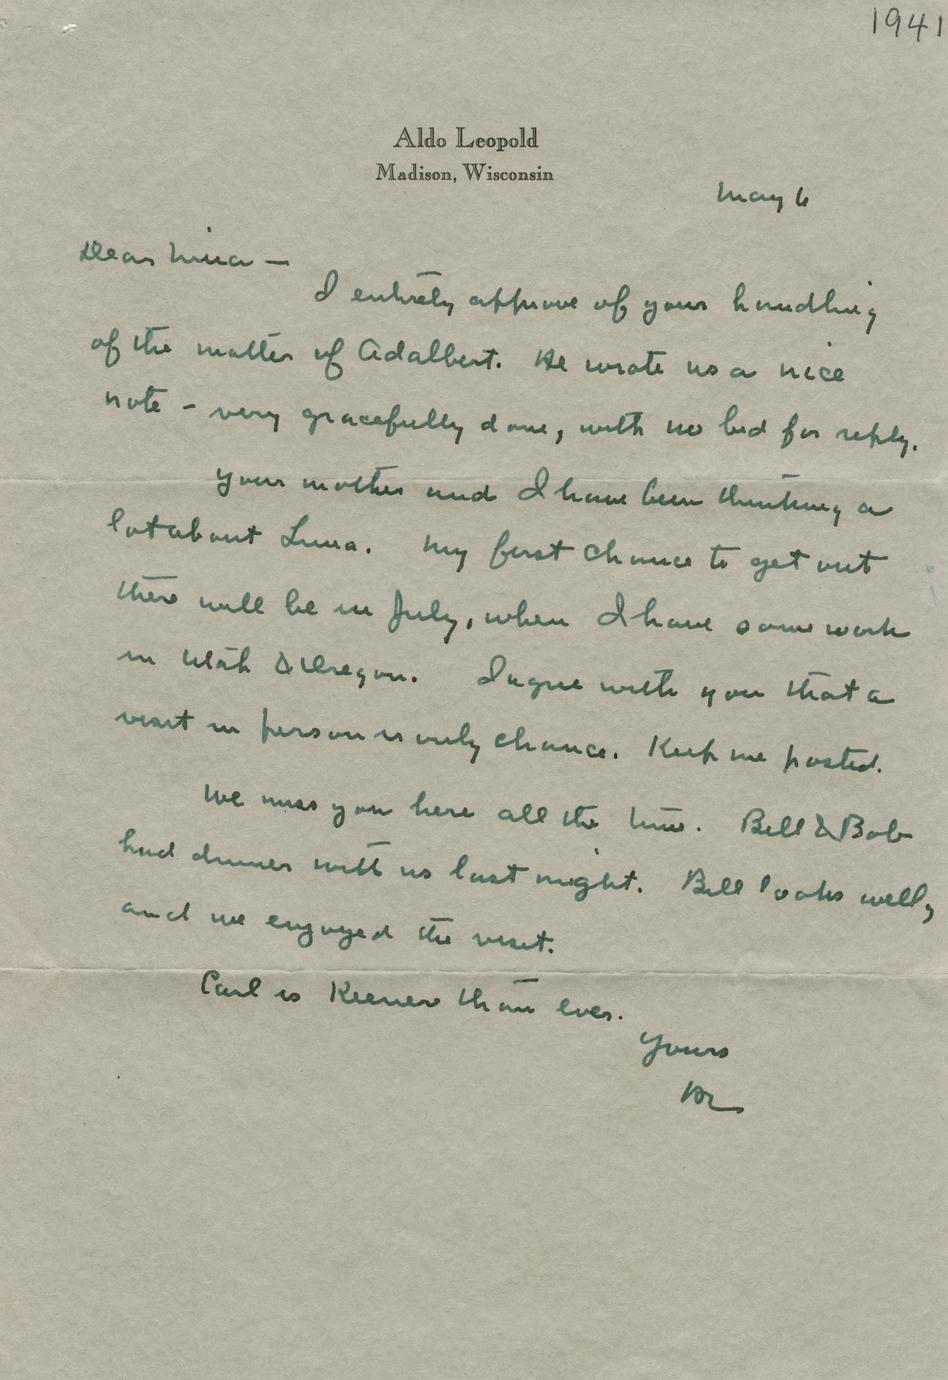 1941
Aldo Leopold
Madison, Wisconsin
May 6
Dear Nina —
I entirely approve of your handling
of the matter of Adalbert. He wrote us a nice
note - very gracefully done, with no bid for reply.
Your mother and I have been thinking a
lot about Luna. My first chance to get out
there will be in July, when I have some work
in Utah & Oregon. I agree with you that a
visit in person is only chance. Keep me posted.
We miss you here all the time. Bill & Bob
had dinner with us last night. Bill looks well,
and we enjoyed the visit.
Carl is keener than ever.
Yours
AL